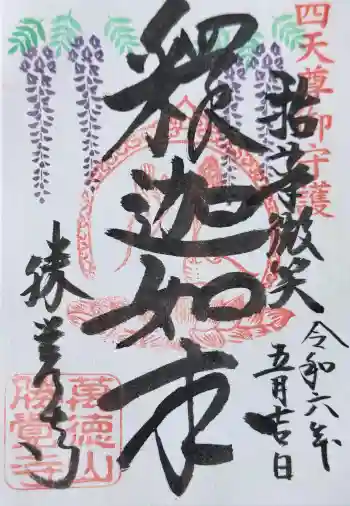 四天尊御守護
拈華微笑
令和六年
五月吉日
釋迦如来
勝覚寺
萬徳山
勝覺寺